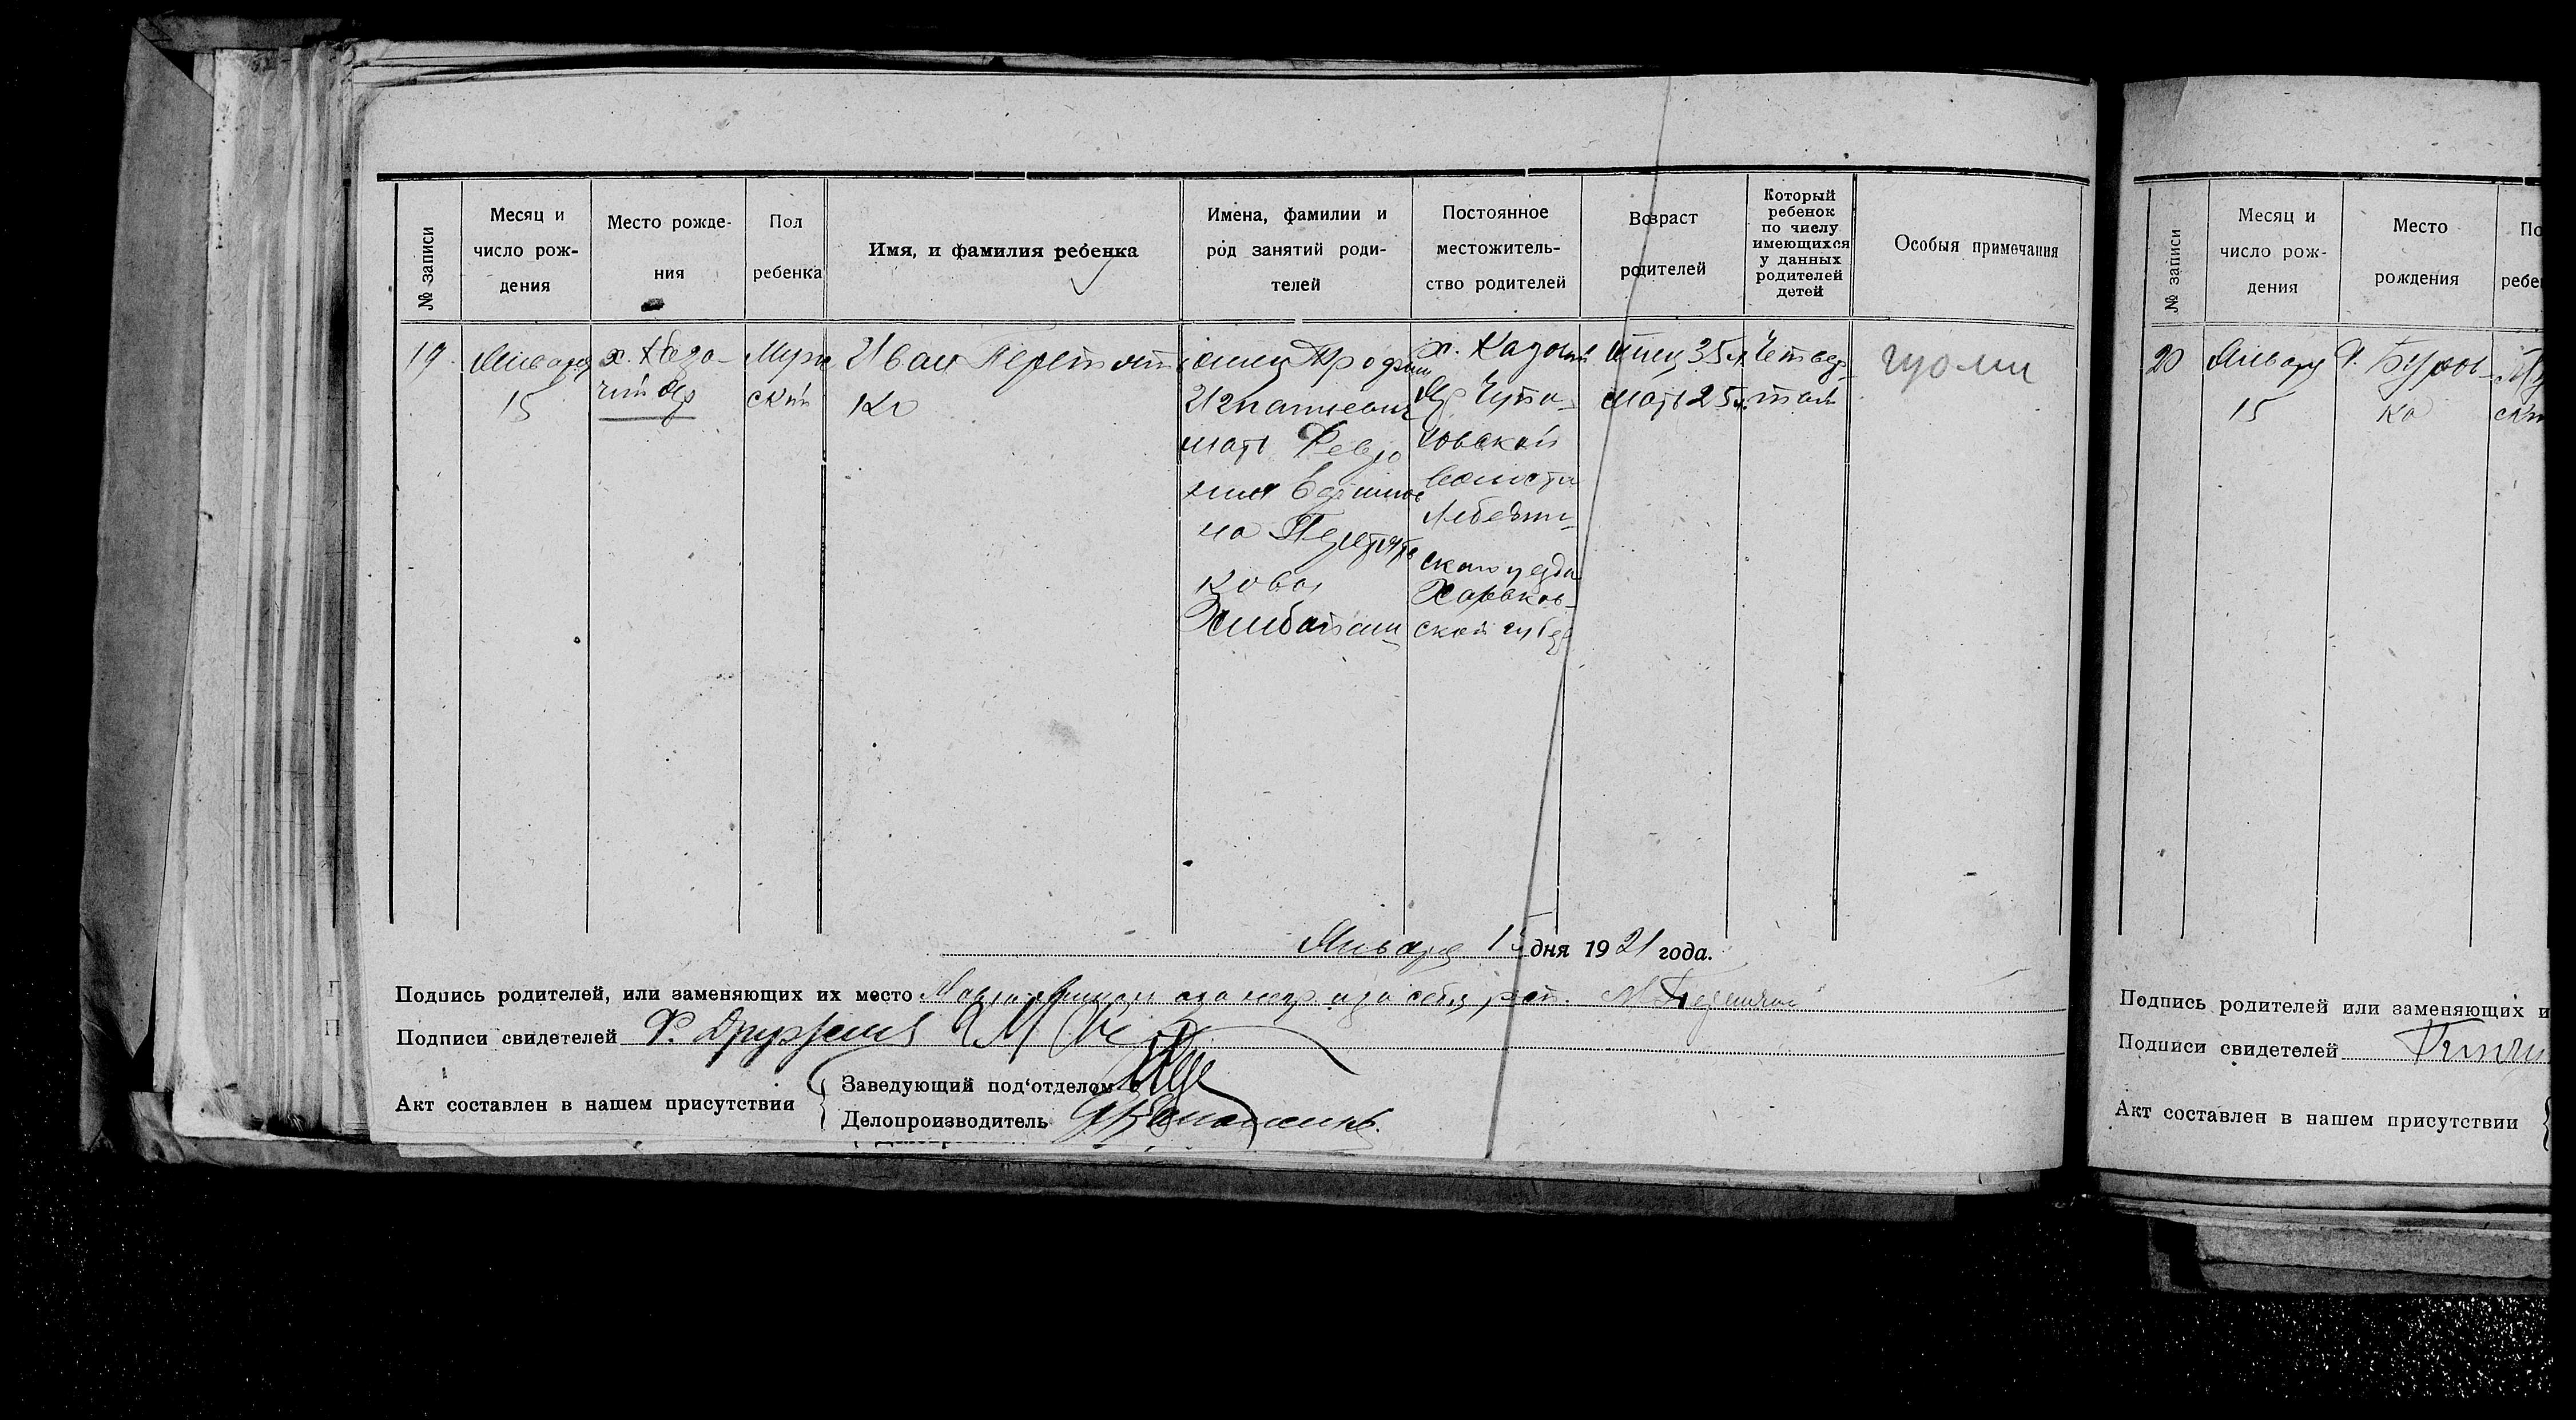 № записи
Месяц и число рождения
Место рождения
Пол ребенка
Имя, и фамилия ребенка
Имена, фамилии и род занятий родителей
Постоянное местожительство родителей
Возраст родителей
Который ребенок по числу имеющихся у данных родителей детей
Особыя примечания
19
Января
15
х. Каза-
чий Яр
Муж
ский
Иван Перетят
ко
отец Трофим
Игнатиевич
мать Февро
ния
на Перетять
кова
Хлебопаш
х. Казачий
Яр Чупа-
ховской
волости
Лебедин-
ского уезда
Харьков-
ской губер
отец 35 л.
мать 25 л.
Четвер-
тый
Января 15 дня 1921 года.
Подпись родителей, или заменяющих их место
Подписи свидетелей
Акт составлен в нашем присутствии
Заведующий под'отделом
Делопроизводитель
№ записи
Месяц и
число рож-
дения
Место
рождения
По
ребе
20
Января
15
Подпись родителей или заменяющих и
Подписи свидетелей
Акт составлен в нашем присутствии